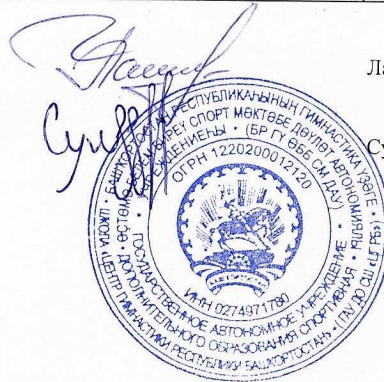 Ла
Су
РЕСПУБЛИКАҺЫНЫҢ ГИМНАСТИКА ҮҘӘГЕ
СПОРТ МӘКТӘБЕ ДӘҮЛӘТ АВТОНОМИЯЛЫ
УЧРЕЖДЕНИЕҺЫ • (БР ГҮ ӨББ СМ ДАУ)
ОГРН 1220200012120
ИНН 0274971780
ГОСУДАРСТВЕННОЕ АВТОНОМНОЕ УЧРЕЖДЕНИЕ
ДОПОЛНИТЕЛЬНОГО ОБРАЗОВАНИЯ СПОРТИВНАЯ
ШКОЛА «ЦЕНТР ГИМНАСТИКИ РЕСПУБЛИКИ БАШКОРТОСТАН» (ГАУ ДО СШ «ЦГ РБ»)